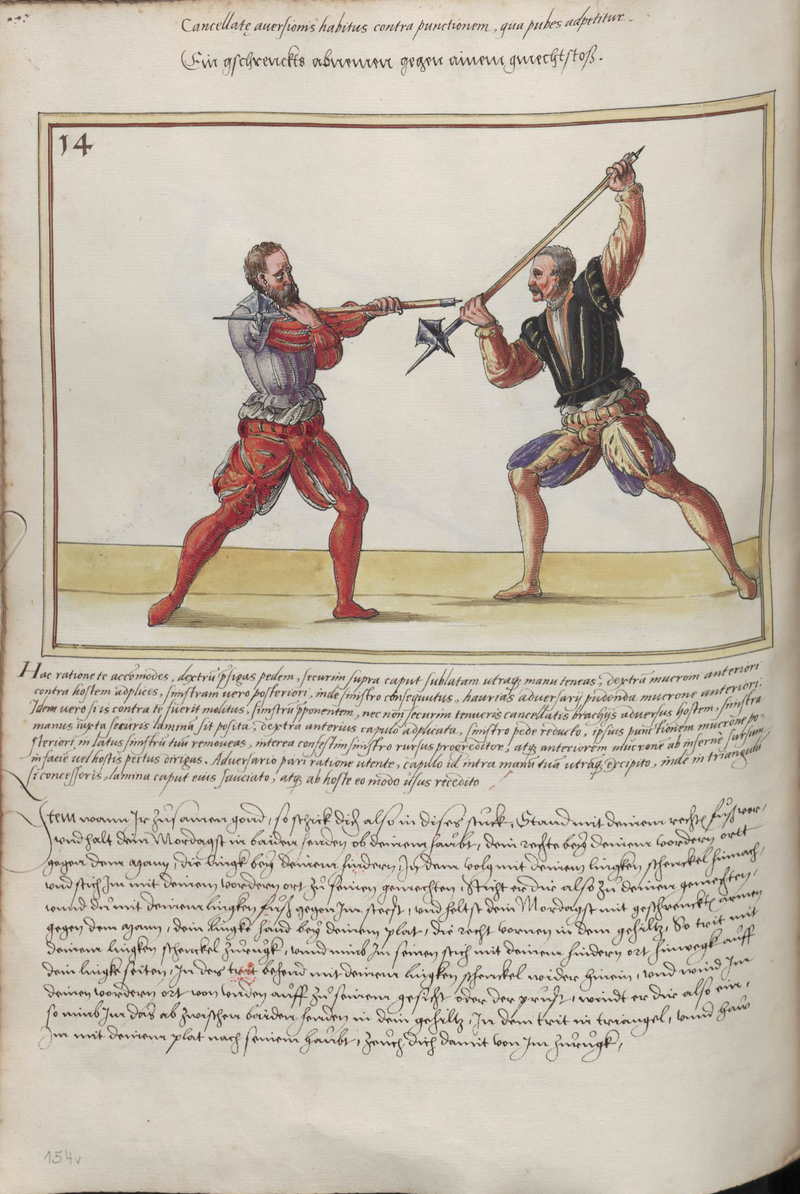 Cancellatę auersionis habitus contra punctionem, qua pubes adpetitur.
Ein gschrenckts abnemen gegen ainem gmechtstoß.
14
Hac ratione te accomodes, dextrũ p̱figas pedem, securim supra caput sublatam utraq; manu teneas, dextrã mucroni anteriori
contra hostem adplices, sinistram uero posteriori, inde sinistro consequutus, haurias aduersarij pudenda mucrone anteriori.
Idem uero si is contra te fuerit molitus, sinistrũ p̱ponentem, nec non securim tenueris cancellatis brachijs aduersus hostem, sinistra
manus iuxta securis lamina sit posita, dextra anterius capulo adplicata, sinistro pede reducto, ipsius punctionem mucrone po-
steriori, in latus sinistrũ tuũ remoueas, interea confestim sinistro rursus progreditor, atq; anteriorem mucronẽ ab inferne sursum
in faciẽ uel hostis pectus dirigas. Aduersario pari ratione utente, capulo id intra manũ tuã utrãq; excipito, inde in triangulũ
si concesseris, lamina caput eius sauciato, atq; ab hoste eo modo usus recedito
Item wann Ir zusamen gond, so schick dich also in dises stuck, Stand mit deinem rechtẽ fuß vor,
vnd halt dein Mordagst in baiden henden ob deinem haubt, dein rechte bey deinem vordern ortt
gegen dem mann, die lingk bey deinem hindern, In dem volg mit deinem lingken schenckel hinnach,
vnd stich Im mit deinem vordern ort zu seinen gemechten, Sticht er dir also zu deinen gemechten,
vnnd du mit deinem lingken fuß gegen Im steest, vnd heltst dein Mordagst mit geschrencktẽ armen
gegen dem mann, dein lingke hand bey deinem plat, die recht vornen in dem gehiltz, So trit mit
deinem lingken schenckel zurugk, vnnd nimb Im seinen stich mit deinem hindern ort hinwegk auff
dein lingke seiten, In des trit behend mit deinem lingken schenckel wider hinein, vnd wind Im
deinen vordern ort von vnden auff zu seinem gesicht oder der prust, windt er dir also ein,
so nimb Im das ab zwischen baiden henden in dein gehiltz, In dem trit in triangel, vnnd haw
Im mit deinem plat nach seinem haubt, zeuch dich damit von Im zurugk,
154v